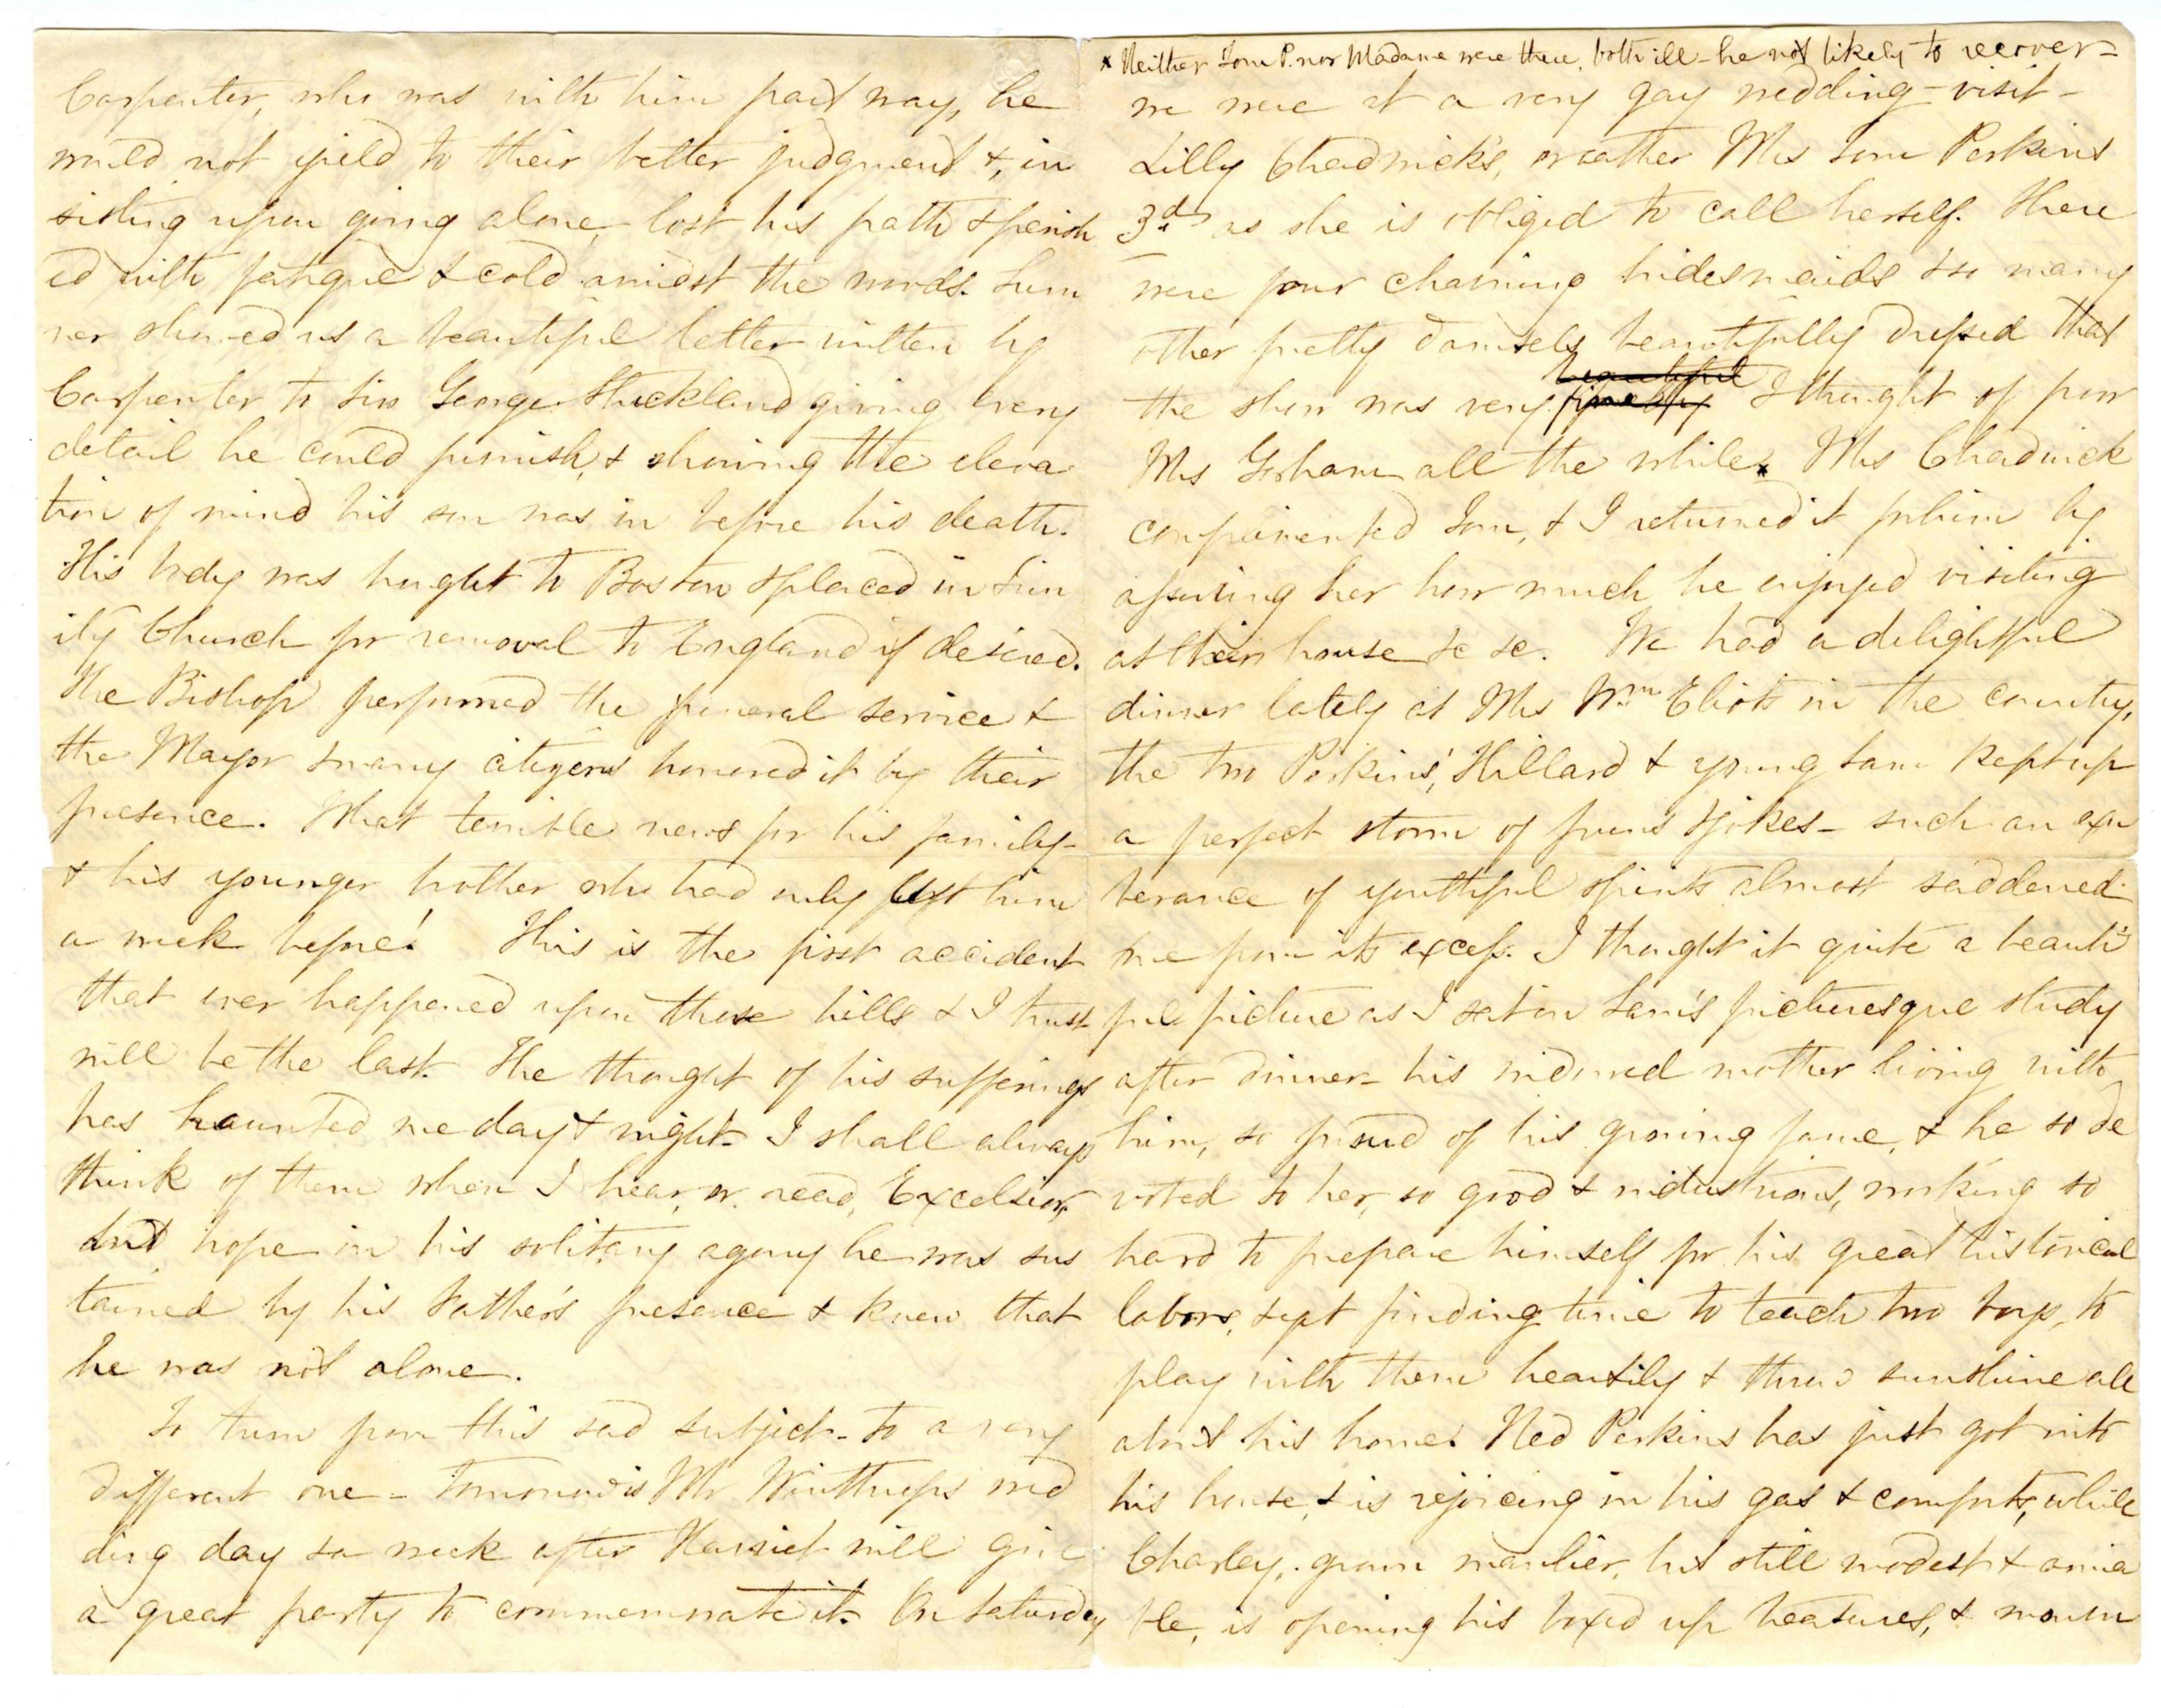 Carpenter, who was with him part way, he
would not yield to their better judgment &, in
sisting upon going alone, lost his path & perish
ed with fatigue & cold amidst the woods. Sum
ner showed us a beautiful letter written by
Carpenter to Sir George Strickland giving every
detail he could furnish, & showing the eleva
tion of mind his son was in before his death.
His body was brought to Boston & placed in Trin
ity Church for removal to England if desired.
The Bishop performed the funeral service &
the Mayor & many citizens honored it by their
presence. What terrible news for his family –
& his younger brother who had only left him
a week before! This is the first accident
that ever happened upon these hills & I trust
will be the last. The thought of his sufferings
has haunted me day & night – I shall always
think of them when I hear, or read, Excelsior,
and hope in his solitary agony he was sus
tained by his Father's presence & knew that
he was not alone.
To turn from this sad subject – to a very
different one – tomorrow is Mr Winthrop's wed
ding day & a week after Harriet will give
a great party to commemorate it. On Saturday
x Neither Tom P. nor Madame were there, both ill – he not likely to recover –
we were at a very gay wedding-visit –
Lilly Chadwick's, or rather Mrs Tom Perkins
3d as she is obliged to call herself. There
were four charming bridesmaids & so many
other pretty damsels beautifully dressed that
beautiful
the show was very fine I thought of poor
Mrs Gorham all the while x Mrs Chadwick
complimented Tom, & I returned it for him by
assuring her how much he enjoyed visiting
at their house &c &c. We had a delightful
dinner lately at Mrs Wm Eliot's in the country,
the two Perkins', Hillard & young Sam kept up
a perfect storm of puns & jokes – such an exu
berance of youthful spirits almost saddened
me from its excess. I thought it quite a beauti
ful picture as I sat in Sam's picturesque study
after dinner – his widowed mother living with
him, so proud of his growing fame, & he so de
voted to her, so good & industrious, working so
hard to prepare himself for his great historical
labors, & yet finding time to teach two boys, to
play with them heartily & throw sunshine all
about his home. Ned Perkins has just got into
his house, & is rejoicing in his gas & comforts, while
Charley, grown manlier, but still modest & amia
ble, is opening his boxed up treasures, & mourn